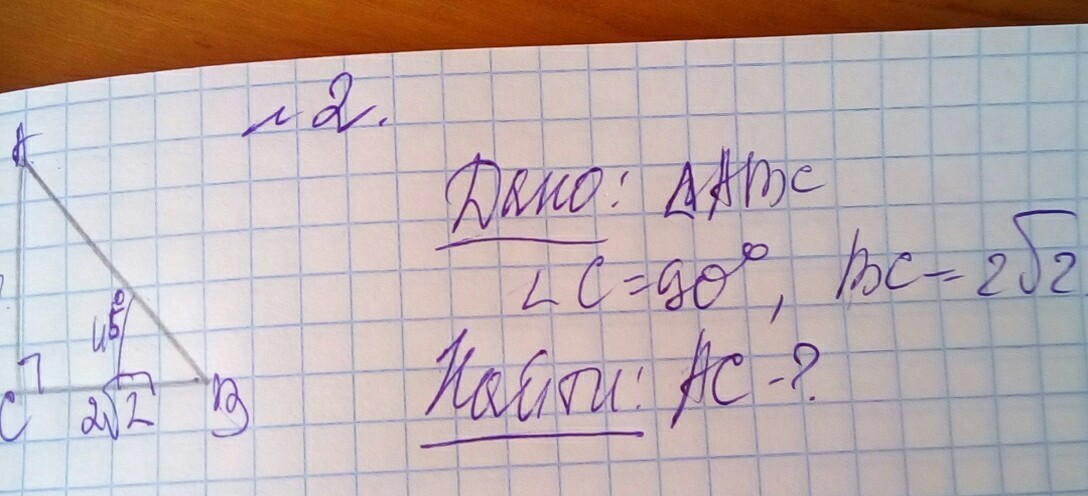 № 2.
Дано: △ABC
∠C=90°, BC=2√2
Найти: AC-?
A
45°
C
2√2
B